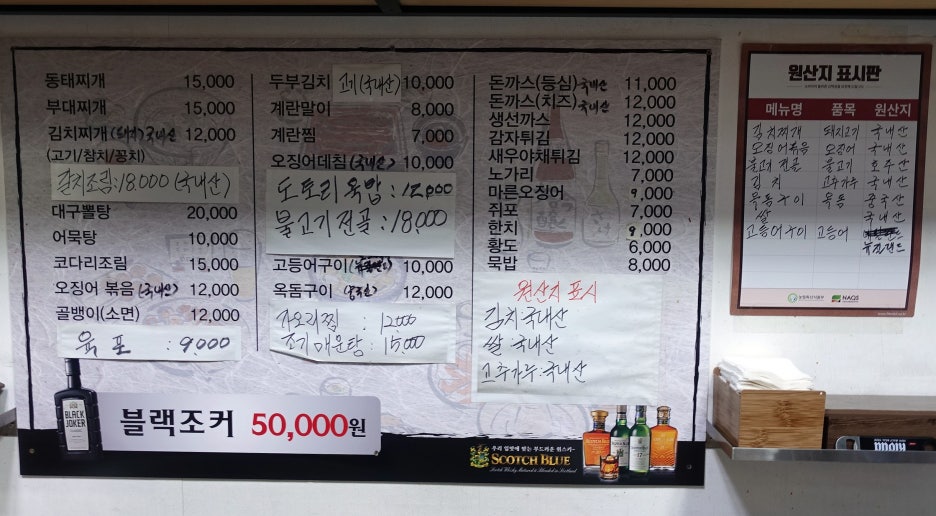 동태찌개 15,000
부대찌개 15,000
김치찌개 (돼지) 국내산 12,000
(고기/참치/꽁치)
갈치조림:18.000 (국내산)
대구뽈탕 20,000
어묵탕 10,000
코다리조림 15,000
오징어 볶음 (국내산) 12,000
골뱅이(소면) 12,000
육포 : 9,000
두부김치 고기(국내산) 10,000
계란말이 8,000
계란찜 7,000
오징어데침 (국내산) 10,000
도토리묵밥 : 12,000
불고기전골 : 18,000
고등어구이 10,000
옥돔구이 (중국산) 12,000
가오리찜 : 12,000
조기매운탕 : 15,000
돈까스(등심) 국내산 11,000
돈까스(치즈) 국내산 12,000
생선까스 12,000
감자튀김 12,000
새우야채튀김 12,000
노가리 7,000
마른오징어 9,000
쥐포 7,000
한치 9,000
황도 6,000
묵밥 8,000
원산지 표시
김치:국내산
쌀:국내산
고추가루:국내산
BLACK
JOKER
블랙조커 50,000원
우리 입맛에 맞는 부드러운 위스키~
SCOTCH BLUE
Scotch Whisky Matured & Blended in Scotland
원산지 표시판
메뉴명 품목 원산지
김치찌개 돼지고기 국내산
오징어볶음 오징어 국내산
불고기 전골 불고기 호주산
김치 고추가루 국내산
옥돔구이 옥돔 중국산
쌀 국내산
고등어구이 고등어
뉴질랜드
농림축산식품부 NAQS